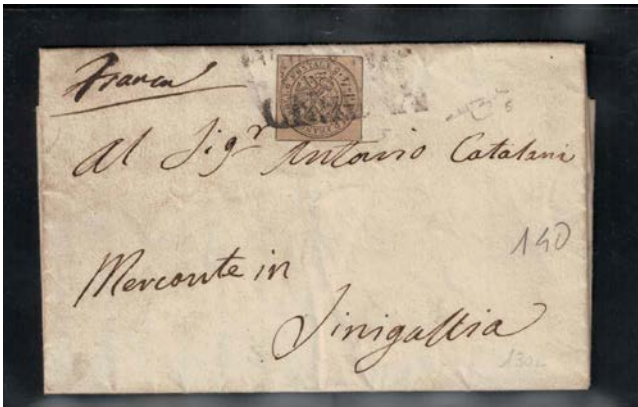 Franca
Al Sigr Antonio Catalani
140
Mercante in
Sinigallia
130